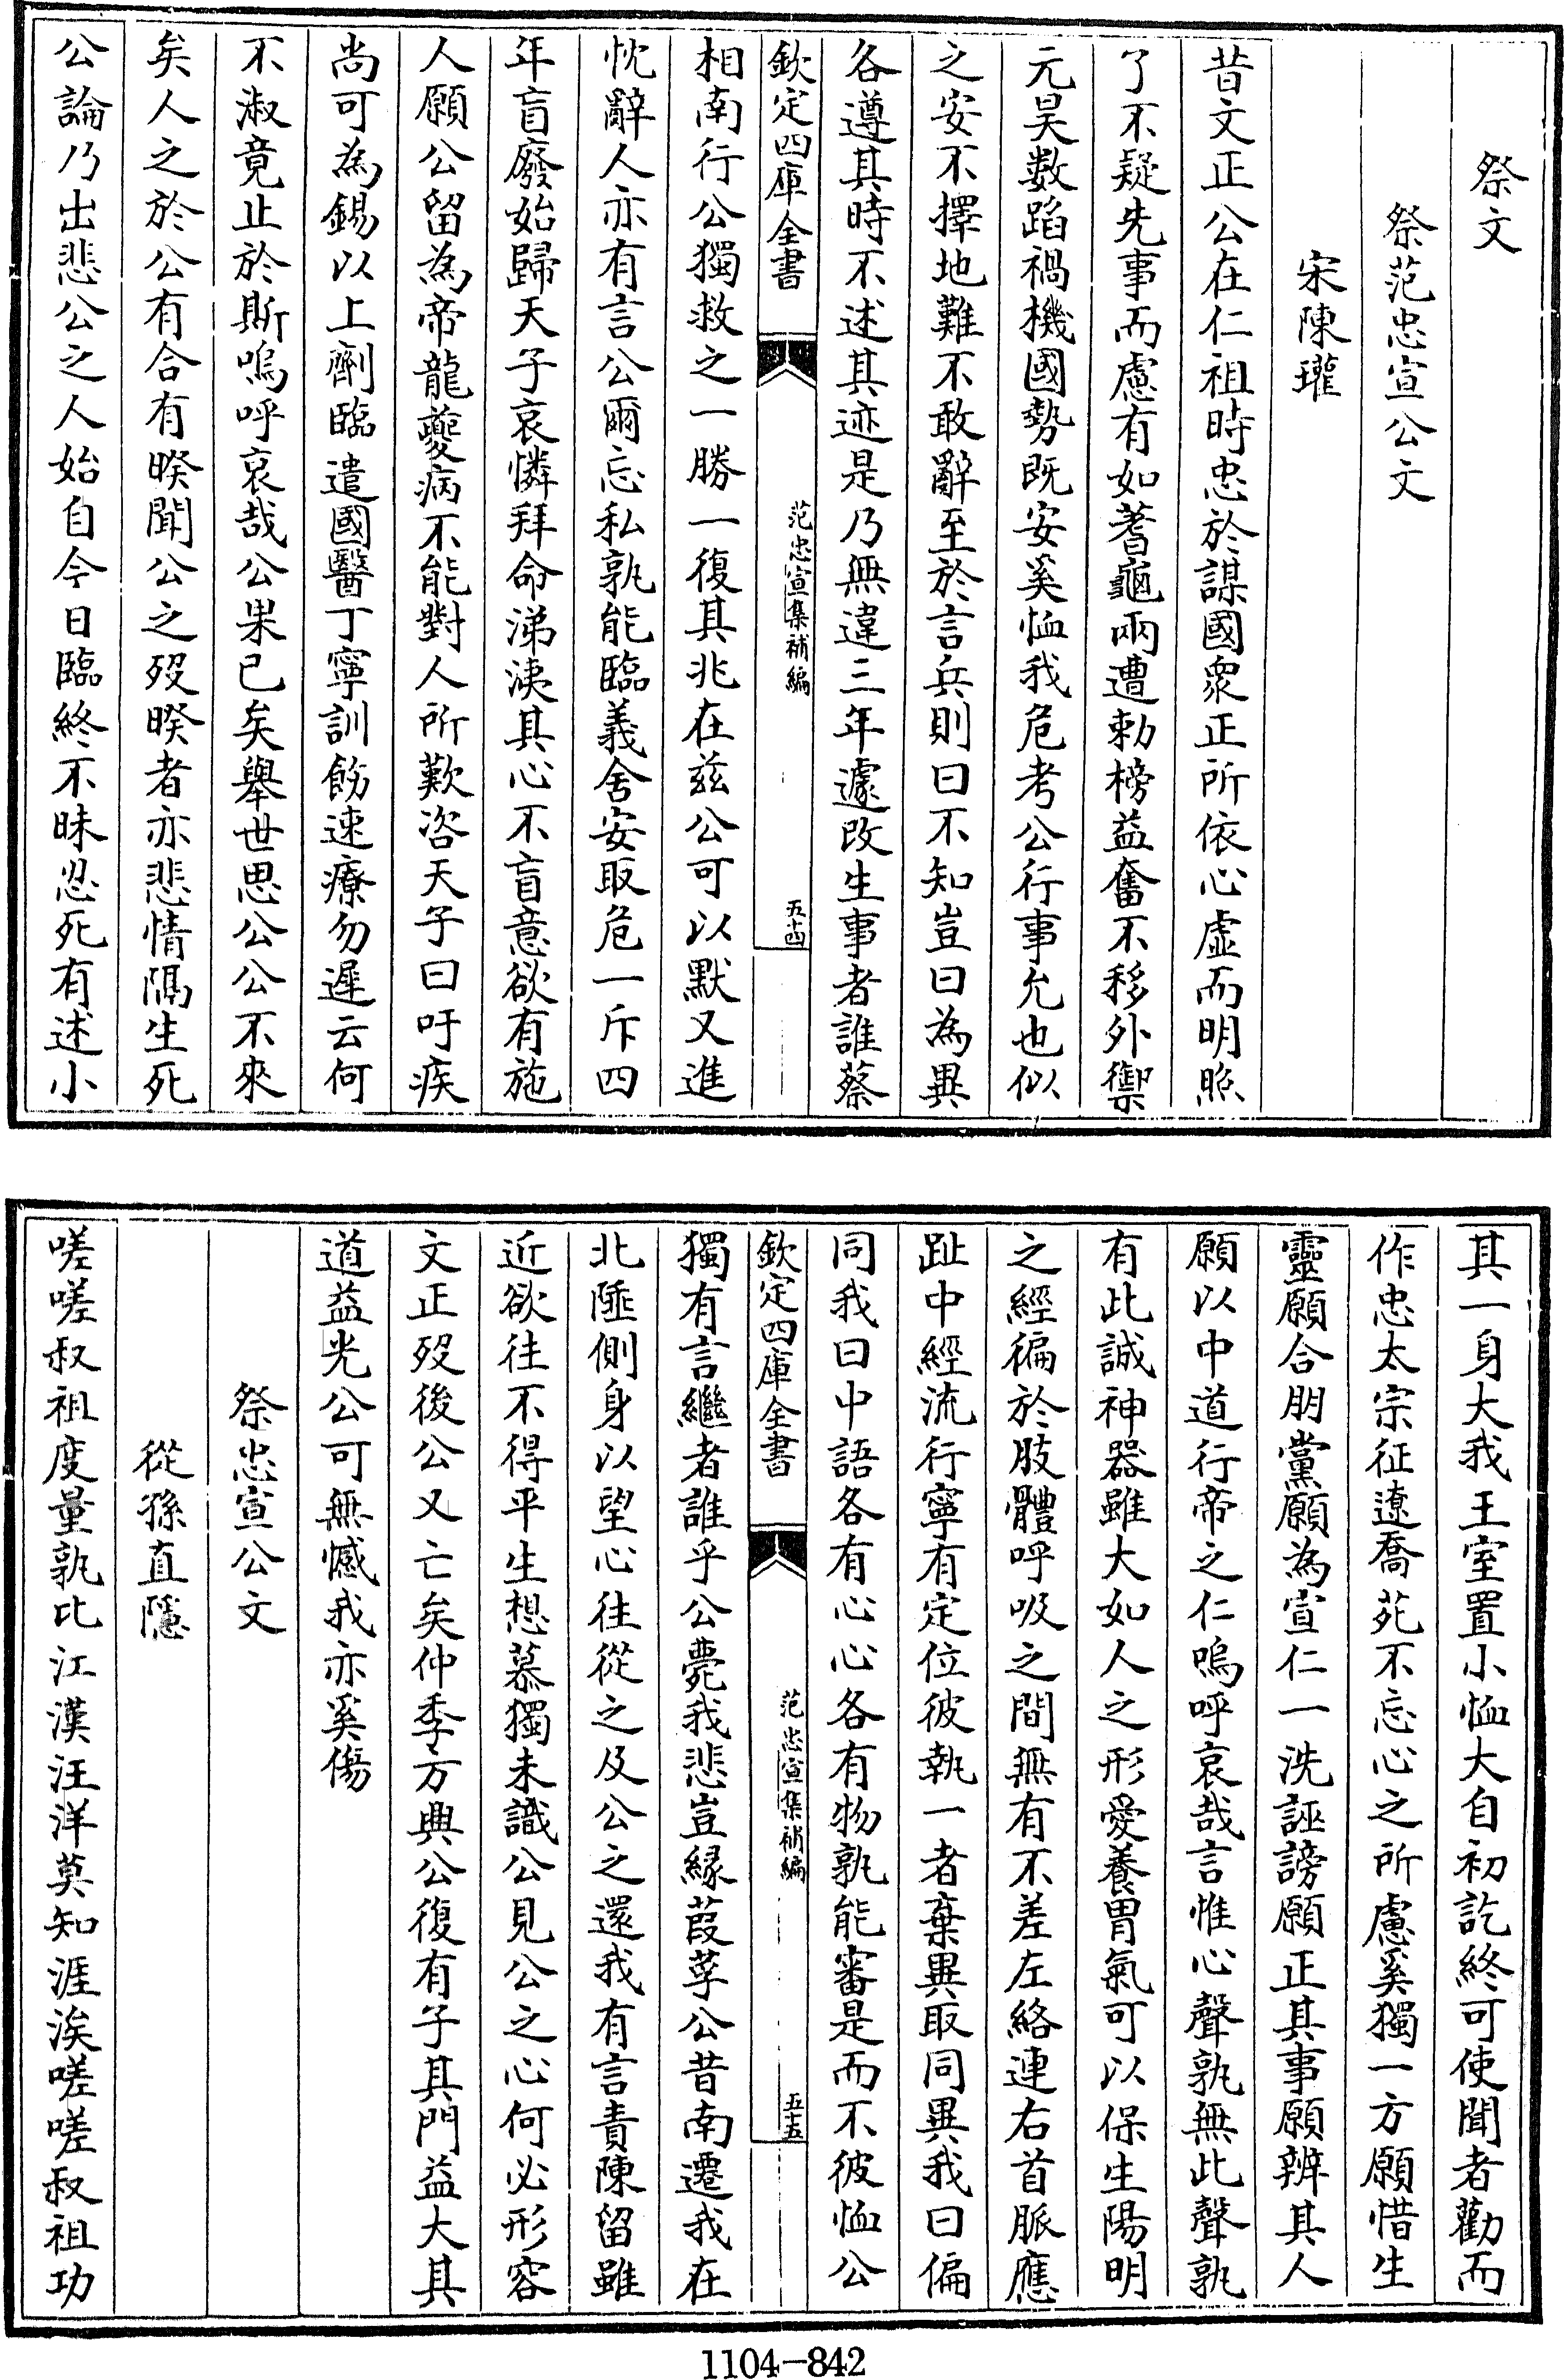 祭文
祭范忠宣公文
宋陳瓘
昔文正公在仁祖時忠於謀國衆正所依心虛而明照
了不疑先事而慮有如蓍龜兩遭勅榜益奮不移外禦
元昊数蹈禍機國勢既安奚恤我危考公行事允也似
之安不擇地難不敢辭至於言兵則曰不知豈曰為異
各遵其時不述其迹是乃無違三年遽改生事者誰蔡
欽定四庫全書
范忠宣集補編
五十四
相南行公獨救之一勝一復其兆在兹公可以默又進
忱辭人亦有言公爾忘私孰能臨義舍安取危一斥四
年盲廢始歸天子哀憐拜命涕洟其心不盲意欲有施
人願公留為帝龍夔病不能對人所歎咨天子曰吁疾
尚可為錫以上劑臨遣國醫丁寧訓飭速療勿遲云何
不淑竟止於斯嗚呼哀哉公果已矣舉世思公公不來
矣人之於公有合有暌聞公之歿暌者亦悲情隔生死
公論乃出悲公之人始自今日臨終不昧忍死有述小
其一身大我王室置小恤大自初訖終可使聞者勸而
作忠太宗征遼喬苑不忘心之所慮奚獨一方願惜生
靈願合朋黨願為宣仁一洗誣謗願正其事願辨其人
願以中道行帝之仁嗚呼哀哉言惟心聲孰無此聲孰
有此誠神器雖大如人之形愛養胃氣可以保生陽明
之經徧於肢體呼吸之間無有不差左絡連右首脈應
趾中經流行寧有定位彼執一者棄異取同異我曰偏
同我曰中語各有心心各有物孰能審是而不彼恤公
欽定四庫全書
范忠宣集補編
五十五
獨有言繼者誰乎公薨我悲豈緣葭莩公昔南遷我在
北陲側身以望心往從之及公之還我有言責陳留雖
近欲往不得平生想慕獨未識公見公之心何必形容
文正歿後公又亡矣仲季方興公復有子其門益大其
道益光公可無憾我亦奚傷
祭忠宣公文
從孫直隱
嗟嗟叔祖度量孰比江漢汪洋莫知涯涘嗟嗟叔祖功
1104-842